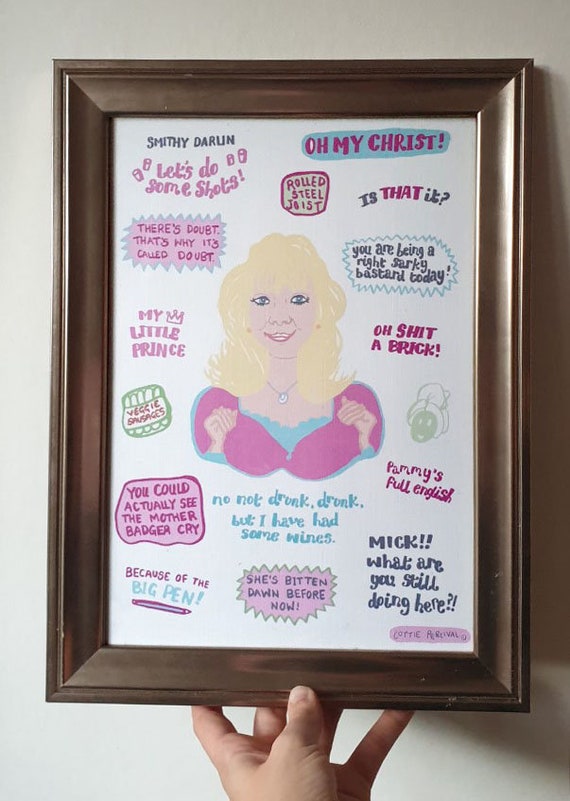 SMITHY DARLIN
OH MY CHRIST!
Let's do
some shots!
ROLLED
STEEL
JOIST
Is THAT it?
THERE'S DOUBT.
THAT'S WHY IT'S
CALLED DOUBT.
you are being a
right sarky
bastard today!
MY
LITTLE
PRINCE
OH SHIT
A BRICK!
VEGGIE
SAUSAGES
Pammy's
full english
YOU COULD
ACTUALLY SEE
THE MOTHER
BADGER CRY
no not drunk, drunk,
but I have had
some wines.
MICK!!
what are
you still
doing here?!
BECAUSE OF THE
BIG PEN!
SHE'S BITTEN
DAWN BEFORE
NOW!
LOTTIE PERCIVAL